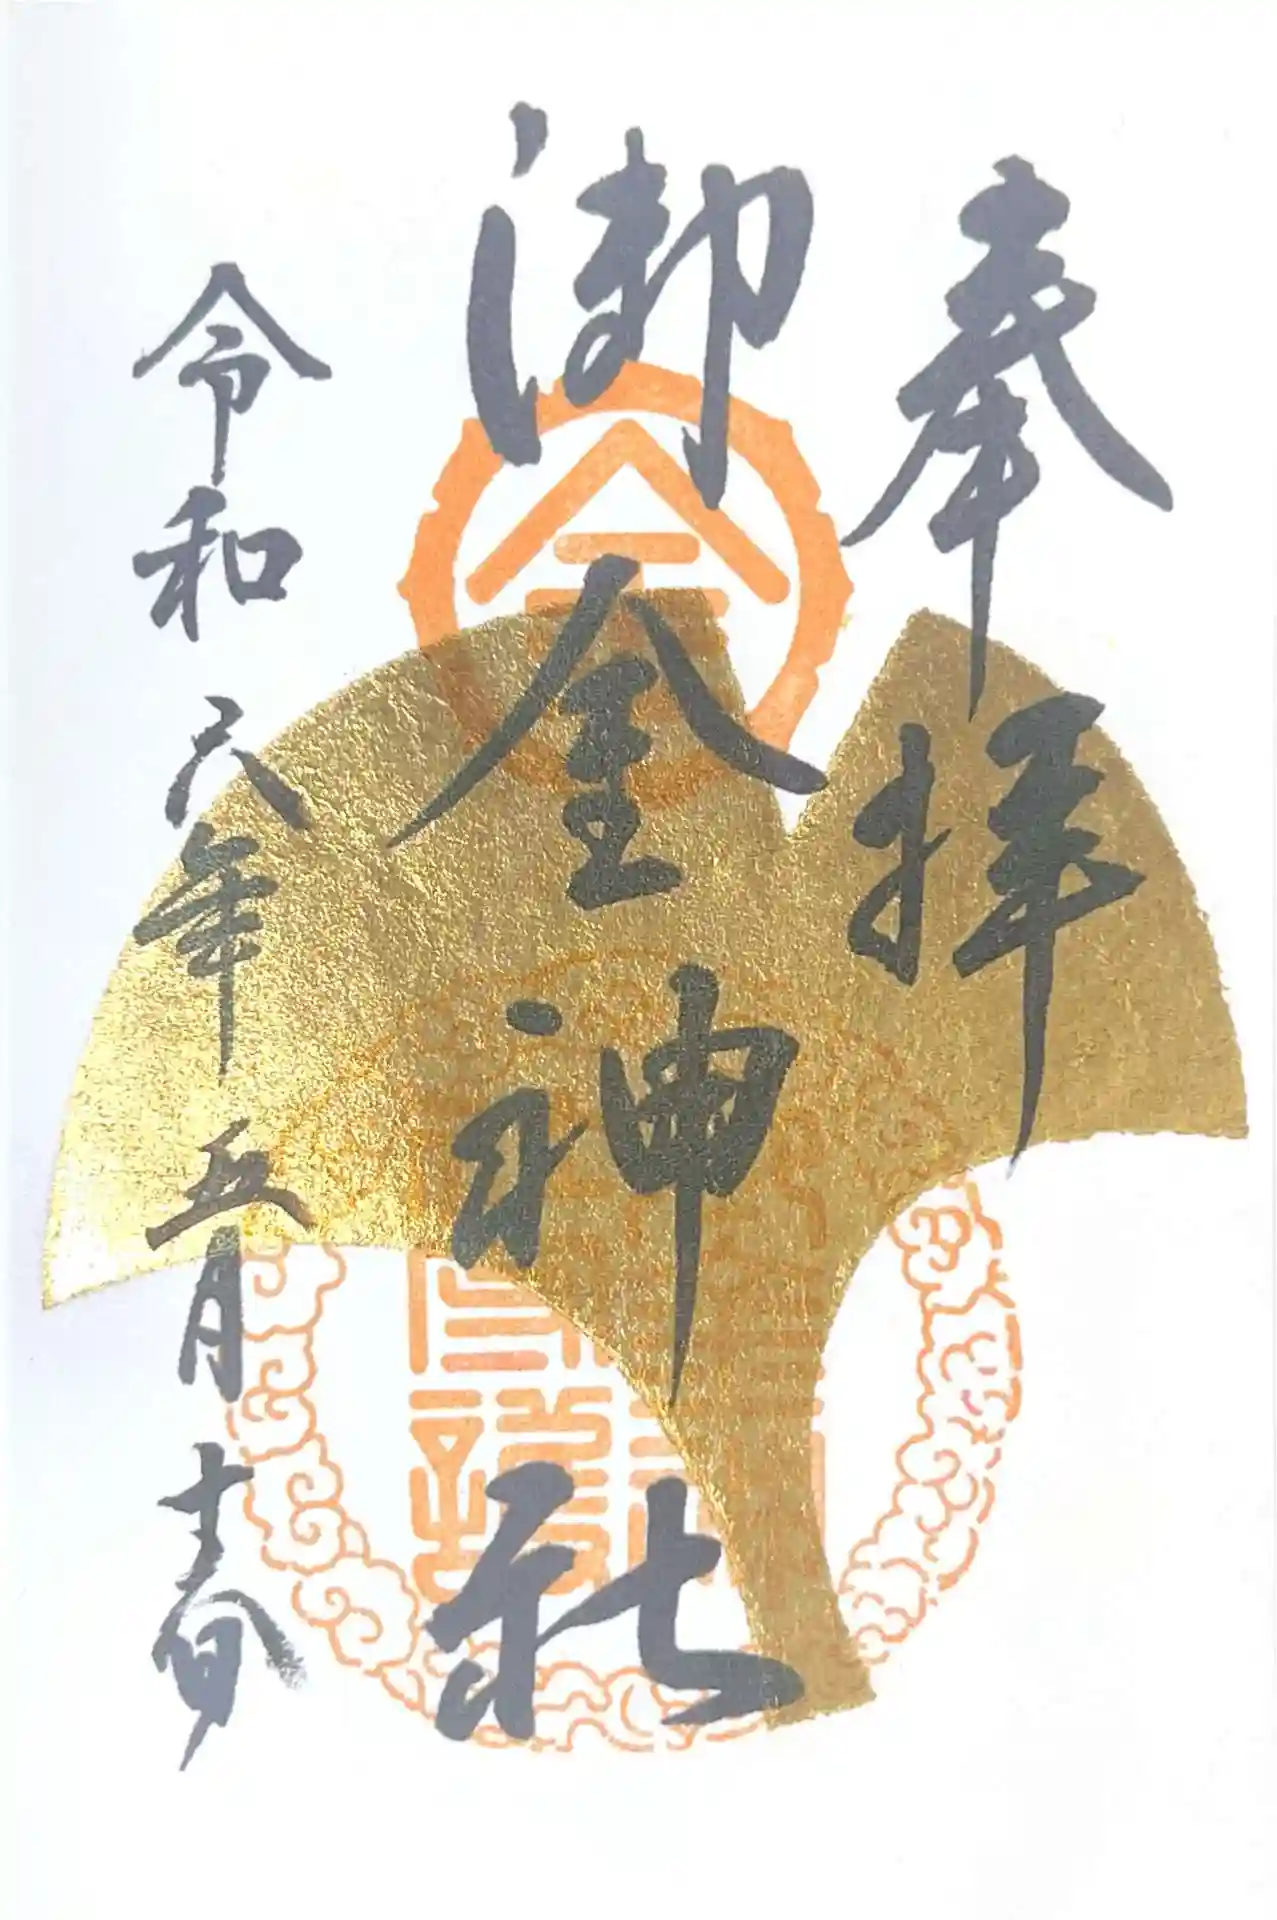 奉拝
御金神社
令和六年五月十
金